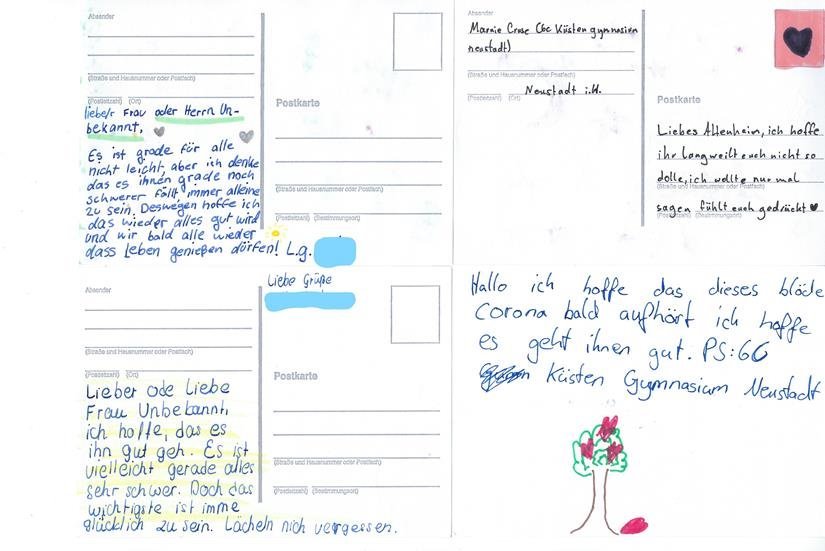 Absender
(Straße und Hausnummer oder Postfach)
(Postleitzahl) (Ort)
liebe/r Frau oder Herrn Un-
bekannt,
Es ist grade für alle
nicht leicht, aber ich denke
das es ihnen grade noch
schwerer fällt immer alleine
zu sein. Deswegen hoffe ich
das wieder alles gut wird
und wir bald alle wieder
dass Leben genießen dürfen! L.g.
Postkarte
(Straße und Hausnummer oder Postfach)
(Postleitzahl) (Bestimmungsort)
Absender
Marnie Crase (6c Küstengymnasium
neustadt)
(Straße und Hausnummer oder Postfach)
Neustadt i.H.
(Postleitzahl) (Ort)
Postkarte
Liebes Altenheim, ich hoffe
ihr langweilt euch nicht so
dolle, ich wollte nur mal
(Straße und Hausnummer oder Postfach)
sagen fühlt euch gedrückt
(Postleitzahl) (Bestimmungsort)
Liebe Grüße
Absender
(Straße und Hausnummer oder Postfach)
(Postleitzahl) (Ort)
Lieber ode Liebe
Frau Unbekannt,
ich hoffe, das es
ihn gut geh. Es ist
vielleicht gerade alles
sehr schwer. Doch das
wichtigste ist imme
glücklich zu sein. Lächeln nich vergessen.
Postkarte
(Straße und Hausnummer oder Postfach)
(Postleitzahl) (Bestimmungsort)
Hallo ich hoffe das dieses blöde
Corona bald aufhört ich hoffe
es geht ihnen gut. PS: 6c
Küsten Gymnasium Neustadt